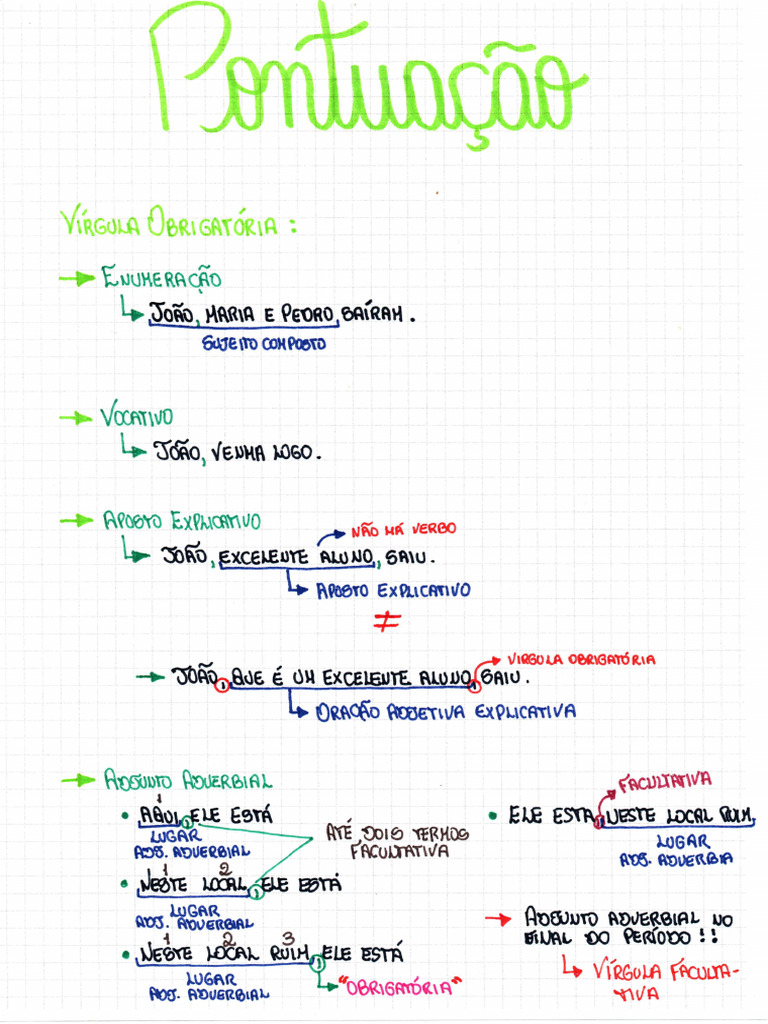 Pontuação
VÍRGULA OBRIGATÓRIA:
→ ENUMERAÇÃO
JOÃO, MARIA E PEDRO, SAÍRAM.
SUJEITO COMPOSTO
→ VOCATIVO
JOÃO, VENHA LOGO.
→ APOSTO EXPLICATIVO
NÃO HÁ VERBO
JOÃO, EXCELENTE ALUNO, SAIU.
APOSTO EXPLICATIVO
≠
VIRGULA OBRIGATÓRIA
→ JOÃO, QUE É UM EXCELENTE ALUNO, SAIU.
ORAÇÃO ADJETIVA EXPLICATIVA
→ ADJUNTO ADVERBIAL
1
• AQUI, ELE ESTÁ
LUGAR
ADJ. ADVERBIAL
ATÉ DOIS TERMOS
FACULTATIVA
1 2
• NESTE LOCAL, ELE ESTÁ
LUGAR
ADJ. ADVERBIAL
1 2 3
• NESTE LOCAL RUIM, ELE ESTÁ
LUGAR
ADJ. ADVERBIAL
"OBRIGATÓRIA"
FACULTATIVA
• ELE ESTA, NESTE LOCAL RUIM.
LUGAR
ADJ. ADVERBIA
→ ADJUNTO ADVERBIAL NO
FINAL DO PERÍODO!!
VÍRGULA FACULTA-
TIVA